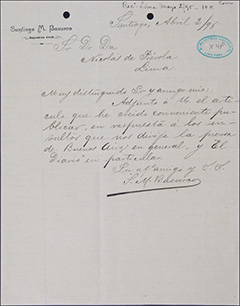 Rec. Lima Mayo 2/95
Santiago M. Basurco
Santiago, Abril 2/95
Sr. Dr. Dn.
Nicolás de Piérola
Lima.
Muy distinguido Sr y amigo mio:
Adjunto á Ud el artí-
culo que he creido conveniente pu-
blicar, en respuesta á los in-
sultos que nos dirije la prensa
de Buenos Aires en general, y El
Diario en particular.
Su af. amigo y S. S.
S. M. Basurco